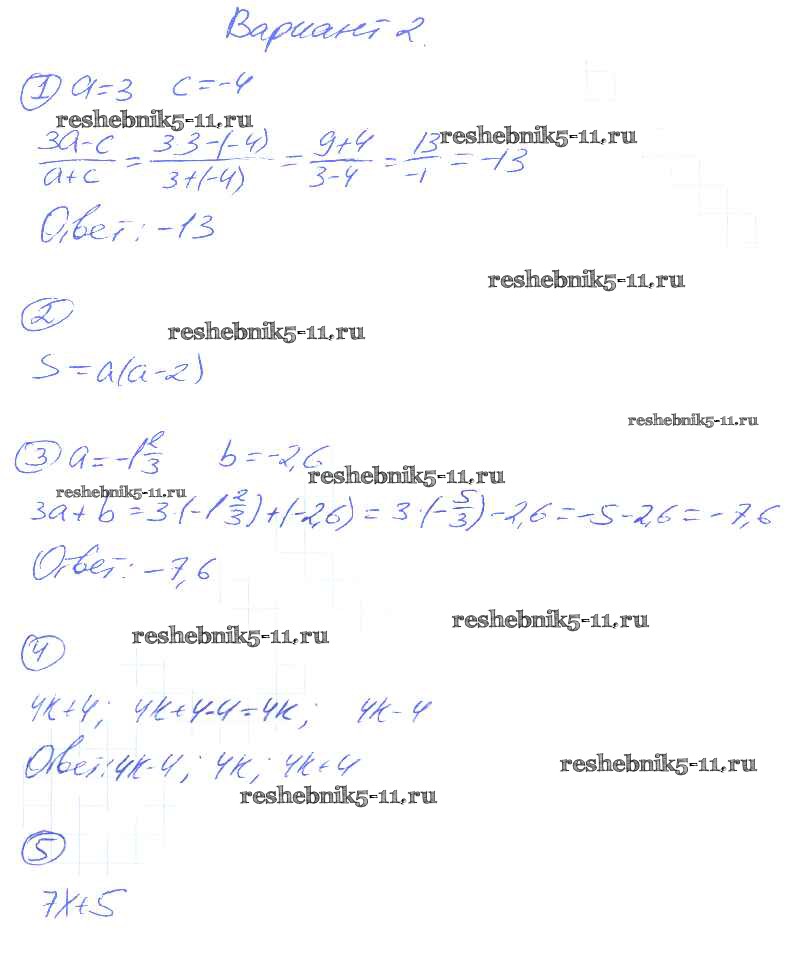 Вариант 2.
① a=3 c=-4
reshebnik5-11.ru
reshebnik5-11.ru
(3a-c)/(a+c) = (3·3-(-4))/(3+(-4)) = (9+4)/(3-4) = 13/-1 = -13
Ответ: -13
reshebnik5-11.ru
②
reshebnik5-11.ru
S=a(a-2)
reshebnik5-11.ru
③ a=-1 2/3 b=-2,6
reshebnik5-11.ru
reshebnik5-11.ru
3a+b=3·(-1 2/3)+(-2,6)=3·(-5/3)-2,6=-5-2,6=-7,6
Ответ: -7,6
reshebnik5-11.ru
reshebnik5-11.ru
④
4k+4; 4k+4-4=4k; 4k-4
Ответ: 4k-4; 4k; 4k+4
reshebnik5-11.ru
reshebnik5-11.ru
⑤
7x+5